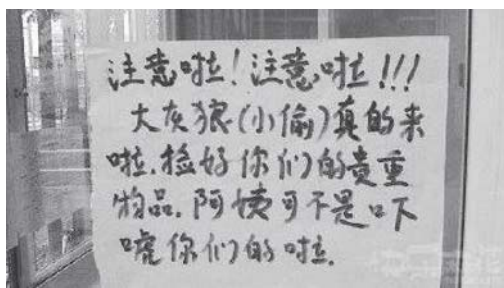 注意啦！注意啦！!!
大灰狼(小偷)真的来
啦.捡好你们的貴重
物品.阿姨可不是吓
唬你们的啦.